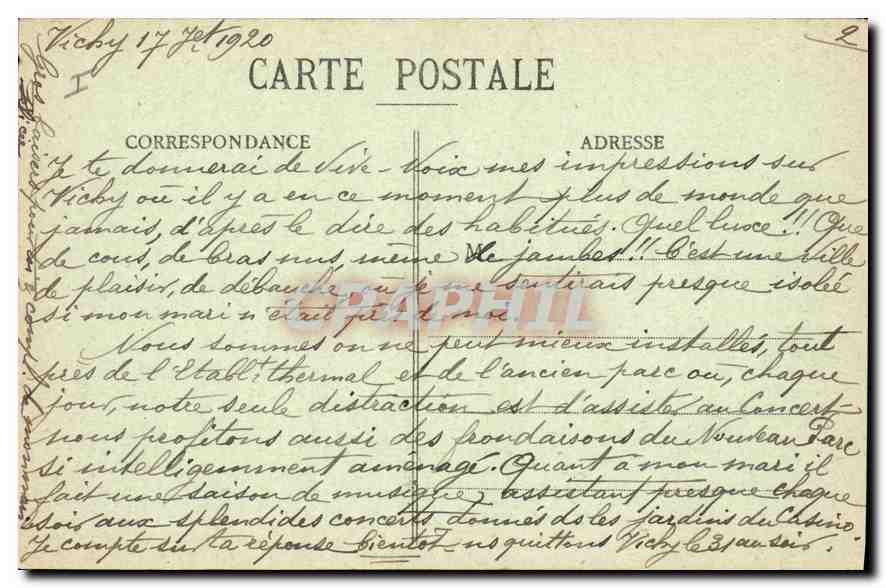 Vichy 17 Jet 1920
2
I
CARTE POSTALE
CORRESPONDANCE
ADRESSE
Je te donnerai de Vive-Voix mes impressions sur
Vichy où il y a en ce moment plus de monde que
jamais, d'après le dire des habitués. Quel luxe!!! Que
de cous, de bras nus, même de jambes!!! C'est une ville
de plaisir, de débauche où je me sentirais presque isolée
si mon mari n'était près de moi.
Nous sommes on ne peut mieux installés, tout
près de l'Etablt thermal et de l'ancien parc où, chaque
jour, notre seule distraction est d'assister au Concert
nous profitons aussi des frondaisons du Nouveau Parc
si intelligemment aménagé. Quant à mon mari il
fait une saison de musique, assistant presque chaque
soir aux splendides concerts donnés ds les jardins du Casino.
Je compte sur ta réponse bientôt ns quittons Vichy le 31 au soir.
Gros baisers pour
CPAPHIL